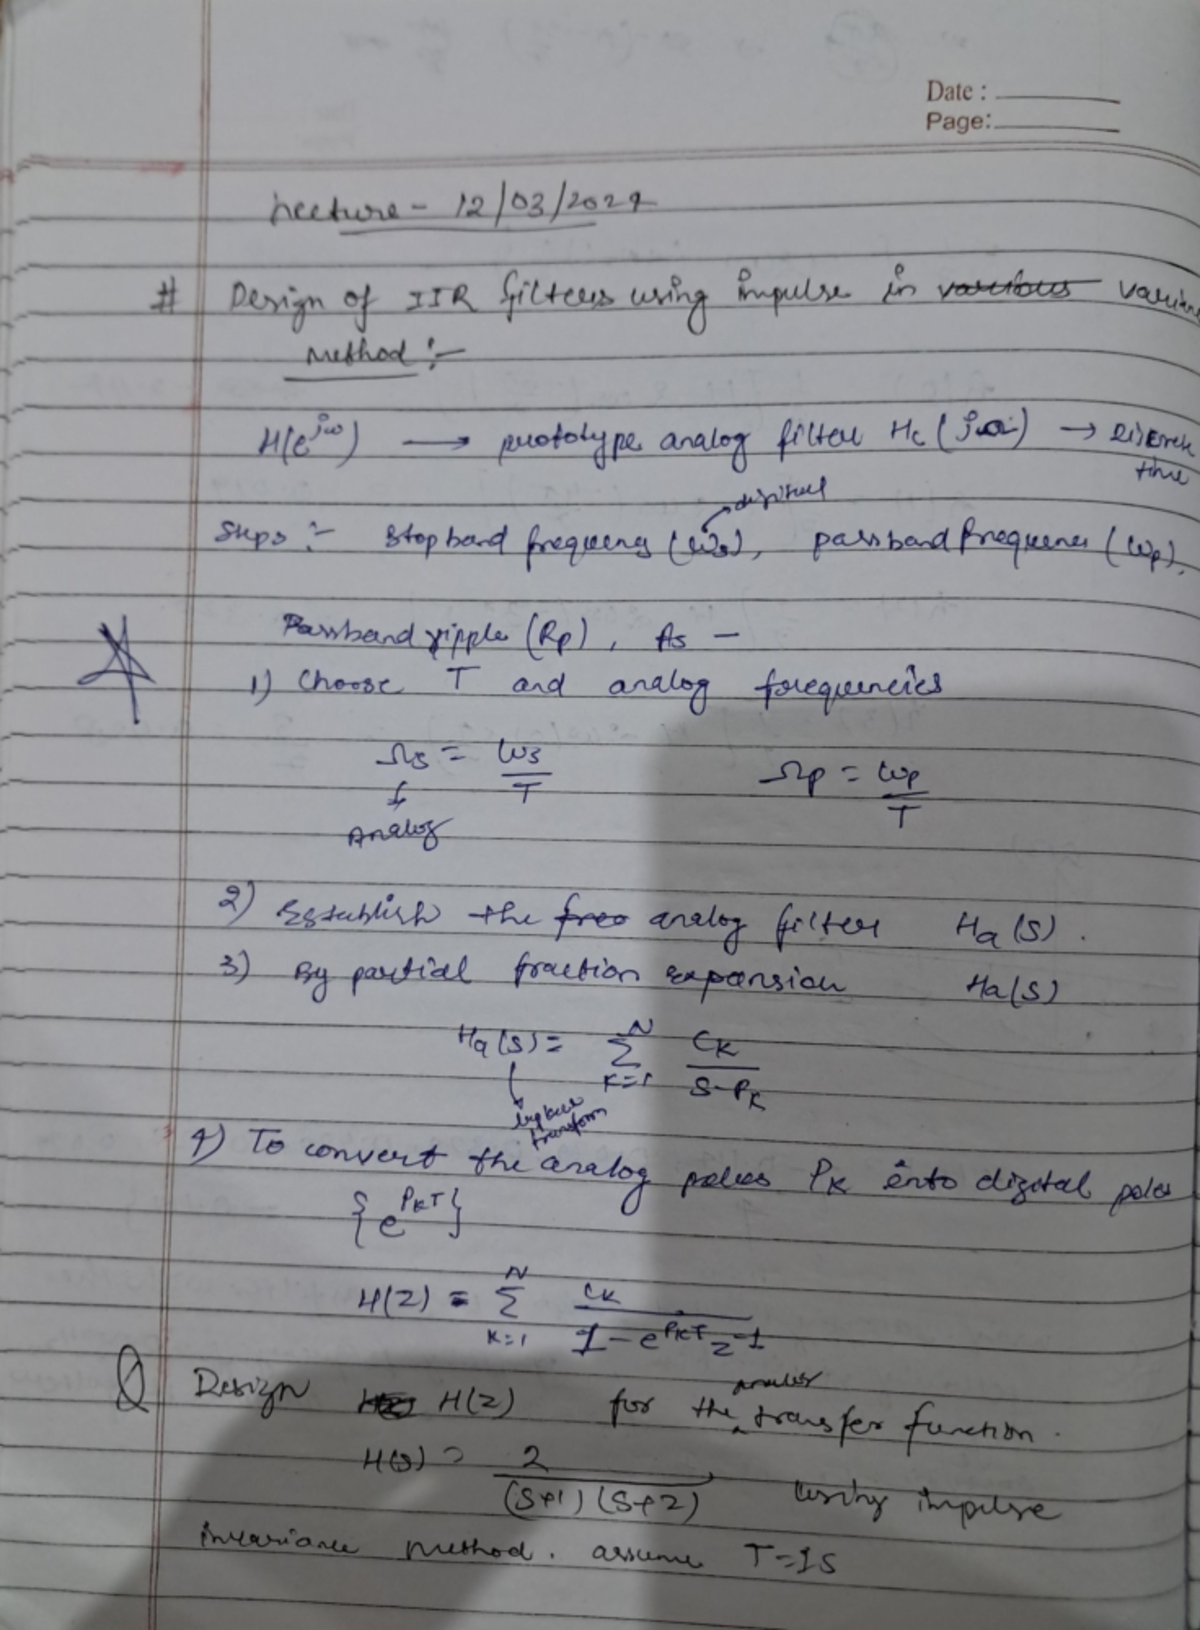 Date :
Page:
Lecture - 12/03/2024
# Design of IIR filters using impulse in ~~various~~ varian
method :-
H(e^jω) → prototype analog filter Hc (jΩ) → Discrete
time
digital
Steps :- Stopband frequency (ωs), passband frequence (ωp),
Passband ripple (Rp), As -
1) Choose T and analog frequencies
Ωs = ωs/T Ωp = ωp/T
Analog
2) Establish the ~~freo~~ analog filter Ha(s).
3) By partial fraction expansion Ha(s)
Ha(s) = Σ_{K=1}^{N} CK/(S-PK)
laplace
transform
4) To convert the analog poles PK into digital poles
{e^{PKT}}
H(z) = Σ_{K=1}^{N} CK/(1-e^{PKT}z^-1)
analog
Q Design H(z) for the transfer function.
H(s) = 2/((S+1)(S+2)) using impulse
invariance method. assume T=1S